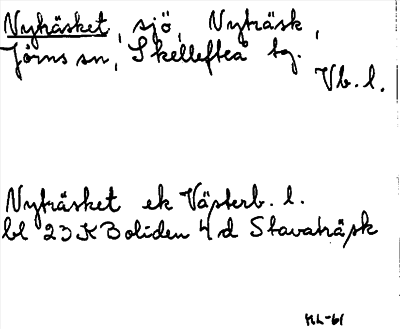 Nyträsket, sjö, Nyträsk,
Jörns sn, Skellefteå tg.
Vb. l.
Nyträsket ek Västerb. l.
bl 23K Boliden 4d Stavaträsk
HL-61